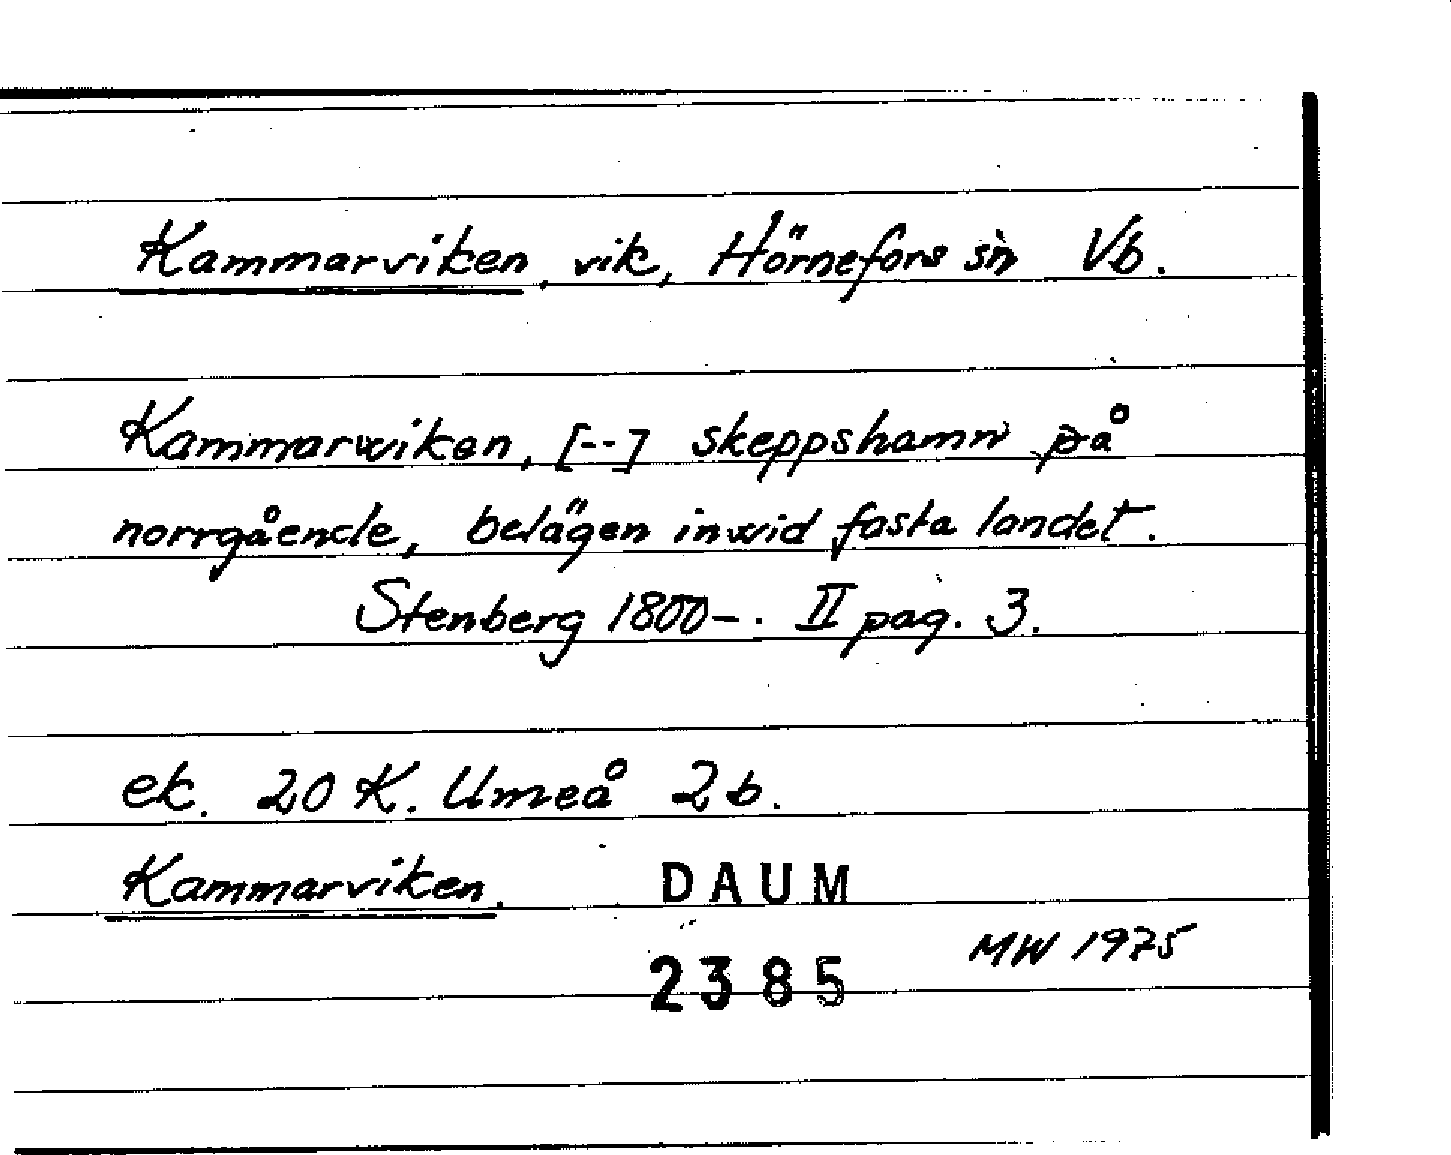 Kammarviken, vik, Hörnefors sn Vb.
Kammarwiken, [--] skeppshamn på
norrgående, belägen inwid fasta landet.
Stenberg 1800-. II pag. 3.
ek. 20 K. Umeå 2b.
Kammarviken.
DAUM
MW 1975
2385